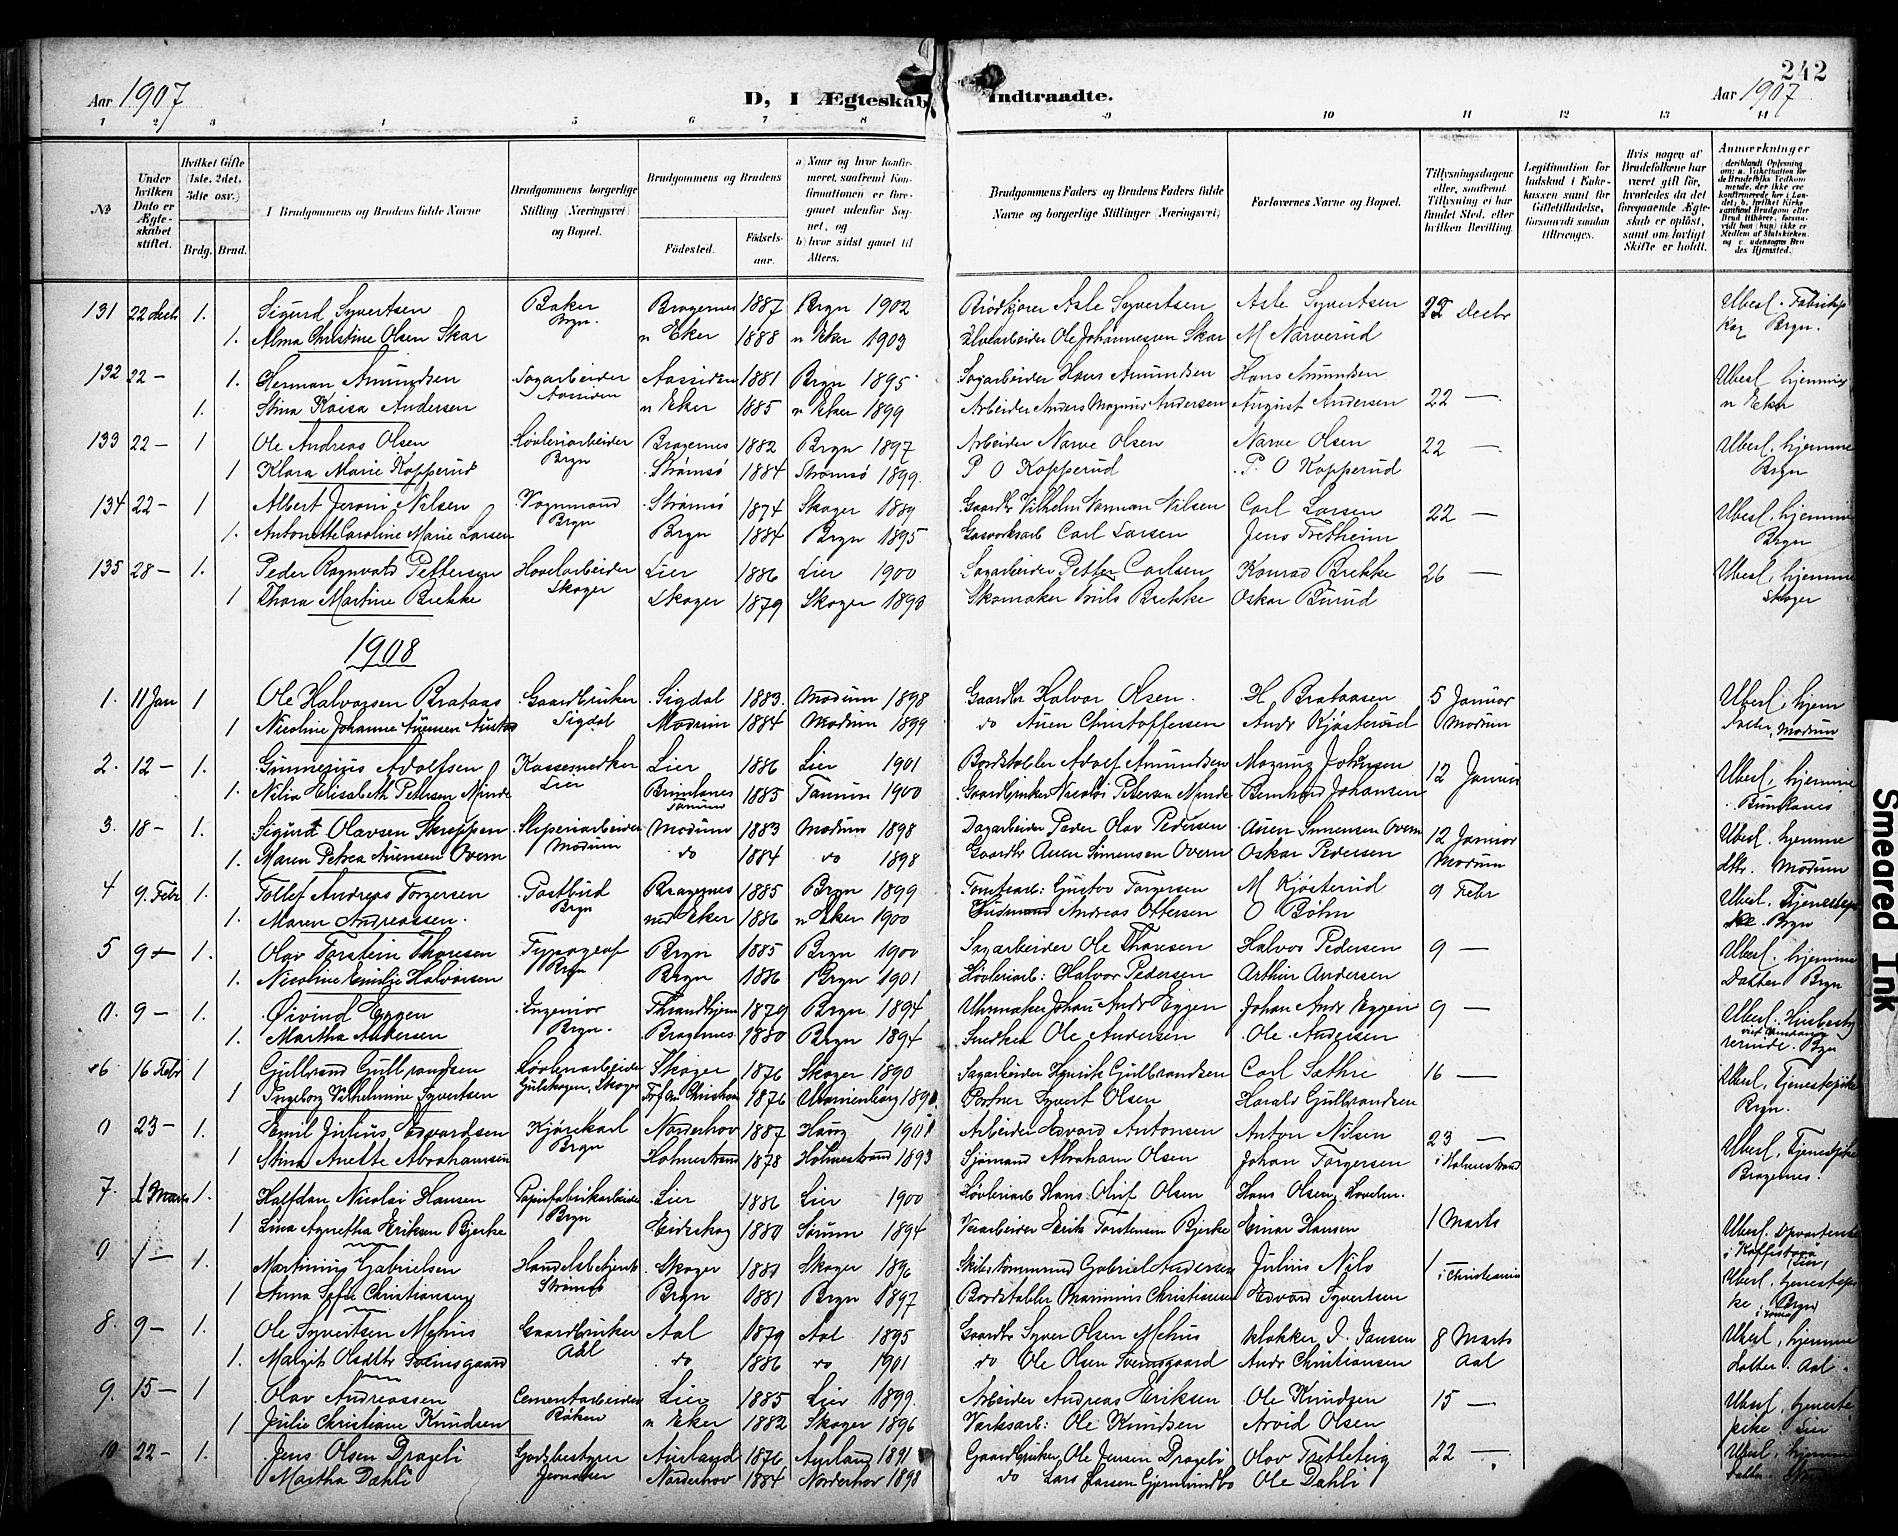 242
Aar 1907 D, I Ægteskab Indtraadte. Aar 1907
1 2 3 4 5 6 7 8 9 10 11 12 13 14
No
Under hvilken Dato er Ægteskabet stiftet.
Hvilket Gifte (1ste, 2det, 3die osv.)
Brdg. Brud.
Brudgommens og Brudens fulde Navne
Brudgommens borgerlige Stilling (Næringsvei) og Bopæl.
Brudgommens og Brudens
Fødested. Fødselsaar.
a) Naar og hvor konfirmeret, samt
b) hvor sidst gaaet til Alters.
Brudgommens Faders og Brudens Faders fulde Navne og borgerlige Stillinger (Næringsvei)
Forlovernes Navne og Bopæl.
Tillysningsdagene eller, saafremt Tillysning ei har fundet Sted, efter hvilken Bevilling.
Legitimation for Indskud i Enkekassen samt for Giftetilladelse, forsaavidt saadan tiltrænges.
Hvis nogen af Brudefolkene har været gift før, hvorledes da det foregaaende Ægteskab er opløst, samt om lovligt Skifte er holdt.
Anmærkninger
131 22 Decb 1. Sigurd Syvertsen Baker Bryn. Bragernes 1887 Bryn 1902 Brødkjører Asle Syvertsen Asle Syvertsen 22 Decbr Ubesl. Fabrikp
1. Alma Christine Olsen Skar n Eker 1888 n Eker 1903 Elvearbeider Ole Johannessen Skar M Narverud Bryn.
132 22 – 1. Herman Amundsen Sagarbeider Aassiden Aassiden 1881 Bryn 1895 Sagarbeider Hans Amundsen Hans Amundsen Ubesl hjemme
1. Stina Kaisa Andersen n Eker 1885 n Eker 1899 Arbeider Anders Magnus Andersen August Andersen 22 – n Eker
133 22 – 1 Ole Andreas Olsen Høvleriarbeider Bryn Bragernes 1882 Bryn 1897 Arbeider Narve Olsen Narve Olsen 22 – Ubesl. hjemme
1 Klara Marie Kopperud Strømsø 1884 Strømsø 1899. P O Kopperud P. O Kopperud Bryn
134 22 – 1 Albert Jeroni Nilsen Vognmand Bryn Strømsø 1874 Skoger 1889 Gaardbr Vilhelm Norman Nilsen Carl Larsen 22 – Ubesl. hjemme
1. Antonette Caroline Marie Larsen Bryn 1884 Bryn 1895 Gasverksarb Carl Larsen Jens Tretheim Bryn
135 28 – 1. Peder Ragnvald Pettersen Høvelarbeider Skoger Lier 1886 Lier 1900 Sagarbeider Petter Carlsen Konrad Brekke 26 – Ubesl. hjemme
1 Thora Martine Brekke Skoger 1879 Skoger 1893 Skomaker Nils Brekke Oskar Burud Skoger
1908
1. 11 Jan 1 Ole Halvorsen Brataas Gaardbruker Sigdal Sigdal 1883. Modum 1898 Gaardbr Halvor Olsen. H Brataasen 5 Januar Ubesl. hjem
1 Nicoline Johanne Auensen Austad Modum 1884 Modum 1899 do Auen Christoffersen Andr Kjøsterud Modum datter, Modum
2. 12 – 1. Gunnerius Adolfsen Kassemerker Lier Lier 1886 Lier 1901 Bordstabler Adolf Amundsen Magnus Johnsen 12 Januar Ubesl. hjemme
1. Nilia Elisabeth Pettersen Minde Bruneanes Tanum 1885 Tanum 1900 Gaardbruker Nicolai Petersen Minde Bernhard Johansen
3. 18 – 1. Sigurd Olavsen Skreppen Sliperiarbeider Modum Modum 1883 Modum 1898 Dagarbeider Peder Olav Pedersen Auen Simensen Overn 12 Januar Ubesl. hjemme
1. Maren Petrea Auensen Overn do 1884 do 1898 Gaardbr Auen Simensen Overn Oskar Pedersen Modum dttr. Modum
4 9. Febr 1. Tollef Andreas Torgersen Postbud Bryn Bragernes 1885 Bryn 1899 Tomtearb: Gustav Torgersen M Kjøsterud 9 Febr Ubesl. Tjenestep
1. Maren Andreassen. ned Eker 1886 n Eker 1900 Husmand Andreas Ottersen O Bøhn ike. Bryn
5 9 – 1. Olav Torstein Thoresen Typograf Bryn Bryn 1885 Bryn 1900 Sagarbeider Ole Thoresen Halvor Pedersen 9 – Ubesl. hjemme
1. Nicoline Emilie Halvorsen Bryn 1886 Bryn 1901 Høvleriarb: Halvor Pedersen Arthur Andersen Datter Bryn
0. 9 – 1. Øivind Eggen Ingeniør Bryn. Throndhjem 1879 Bryn 1894 Uhrmaker Johan Andr Eggen Johan Andr Eggen 9 – Ubesl.
1. Martha Andersen Bragernes 1880 Bryn 1894 Snedker Ole Andersen Ole Andersen
6 16 Febr 1 Gulbrand Gulbrandsen Høvleriarbeider Gulskogen, Skoger Skoger 1876 Skoger 1890 Sagarbeider Henrik Gulbrandsen Carl Sæthre 16 – Ubesl. Tjenestepike
1 Ingeborg Vilhelmine Syvertsen 1876 Marienborg 1891 Portner Syvert Olsen Harald Gulbrandsen Bryn.
0 23 – 1. Emil Julius Edvardsen Kjørekarl Bryn Norderhov 1887 Haug 1901 Arbeider Edvard Antonsen Anton Nilsen 23 – Ubesl. Tjenestpike
1 Stina Anette Abrahamsen Holmestrand 1878 Holmestrand 1893 Sjømand Abraham Olsen Johan Torgersen i Holmestrand Bragernes.
7. 1 Marts 1. Halfdan Nicolai Hansen Papirfabrikarbeider Bryn Lier 1886 Lier 1900 Høvleriarb Hans Oluf Olsen Hans Olsen Hovelen. 1 Marts
1 Lina Agnetha Eriksen Bjerke Eidskog 1880 Sørum 1894 Veiarbeider Erik Torstensen Bjerke Einar Hansen Ubesl. Opvarterske i Kaffistova
0 1 – 1. Martinius Gabrielsen Handelsbetjent Strømsø Skoger 1880 Skoger 1896 Skibstømmermand Gabriel Andersen Julius Nilo 1 – i Christiania Ubesl. tjenestepi
1 Anna Sofie Christiansen Bryn 1881 Bryn 1897 Bordstabler Maximus Christiansen Edvard Syvertsen ke, Bryn
8. 9 – 1. Ole Syvertsen Mehus Gaardbruker Aal Aal 1879 Aal 1895 Gaardbr Syver Olsen Mehus klokker J. Jansen 8 Marts Ubesl, hjemme
1. Malgit Olsdttr Sveinsgaard do 1886 do 1901 do Ole Olsen Sveinsgaard Andr Christiansen Aal datter. Aal.
9. 15 – 1 Olav Andreassen Cementarbeider Røken Lier 1885 Lier 1899. Arbeider Andreas Eriksen Ole Knudsen 15 – Ubesl. tjeneste
1 Julie Christiane Knudsen n Eker 1882 Skoger 1896 Verksarb: Ole Knudsen Arvid Olsen pike Lier
10 22 – 1. Jens Olsen Drageli Godsbestyrer Jevnaker Aurland 1876 Aurland 1891 Gaardbruker Ole Jensen Drageli Olav Tretteteig 22 – Ubesl. hjemme
Martha Dæhli Norderhov 1884 Norderhov 1898 do Lars Larsen Gjermundbo Ole Dæhli datter.
Smeared Ink